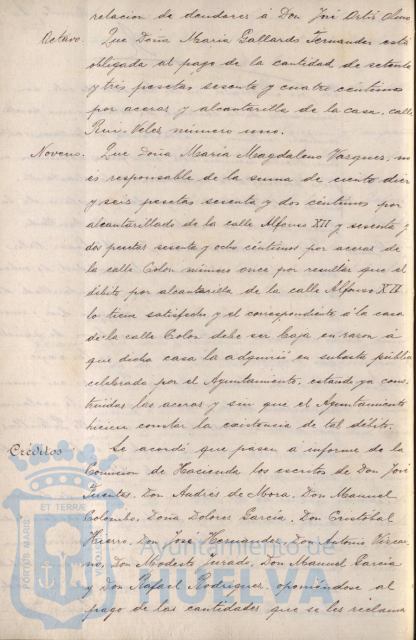 relacion de deudores á Don José Ortiz
Octavo. Que Doña Maria Gallardo Fernandez está
obligada al pago de la cantidad de setenta
y tres pesetas sesenta y cuatro céntimos
por aceras y alcantarilla de la casa, calle
Rui-Velez número uno.
Noveno. Que Doña Maria Magdaleno Vazquez, no
és responsable de la suma de ciento diez
y seis pesetas sesenta y dos céntimos por
alcantarillado de la calle Alfonso XII y sesenta y
dos pesetas sesenta y ocho céntimos por aceras de
la calle Colon número once por resultar que el
débito por alcantarilla de la calle Alfonso XII
lo tiene satisfecho y el correspondiente á la casa
de la calle Colon debe ser baja en razon á
que dicha casa la adquirió en subasta pública
celebrada por el Ayuntamiento, estando ya cons-
truidas las aceras y sin que el Ayuntamiento
hiciera constar la existencia de tal débito.
Créditos Se acordó que pasen á informe de la
Comision de Hacienda los escritos de Don José
Fuentes, Don Andrés de Mora, Don Manuel
Colombo, Doña Dolores Garcia, Don Cristóbal
Hierro, Don José Hernandez, Don Antonio Vizcai-
no, Don Modesto Jurado, Don Manuel Garcia
y Don Rafael Rodriguez, oponiéndose al
pago de las cantidades que se les reclama
PORTUS MARIS
ET TERRÆ
Ayuntamiento de
HUELVA